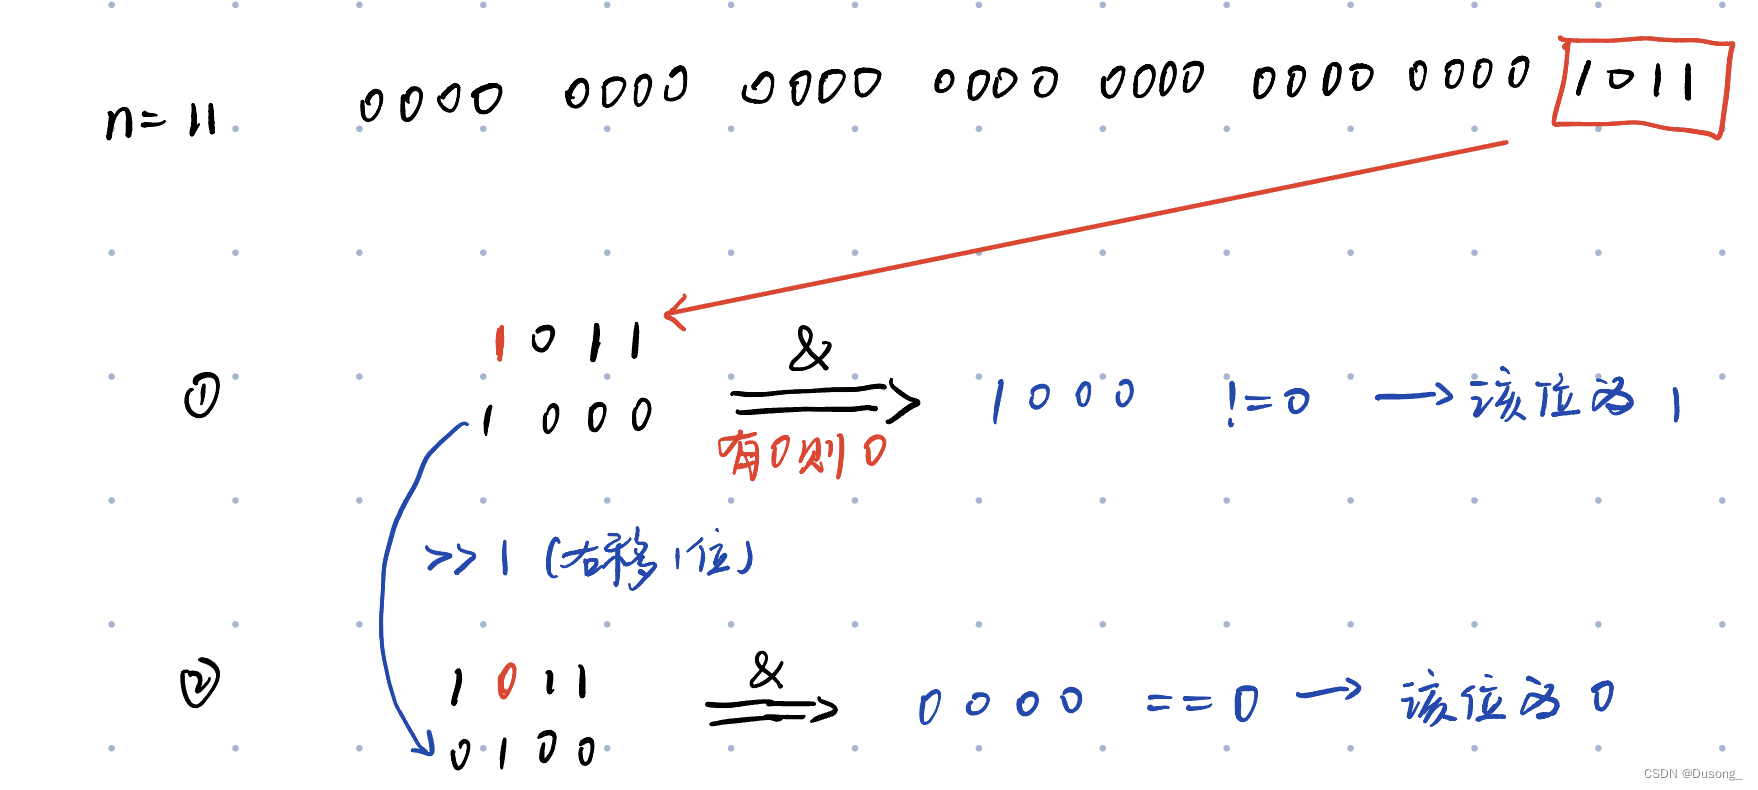 n = 11 0000 0000 0000 0000 0000 0000 0000 1011
① 1011 & 1000 != 0 → 该位为 1
1000 有0则0
>> 1 (右移1位)
② 1011 & 0000 == 0 → 该位为 0
0100
CSDN @Dusong_